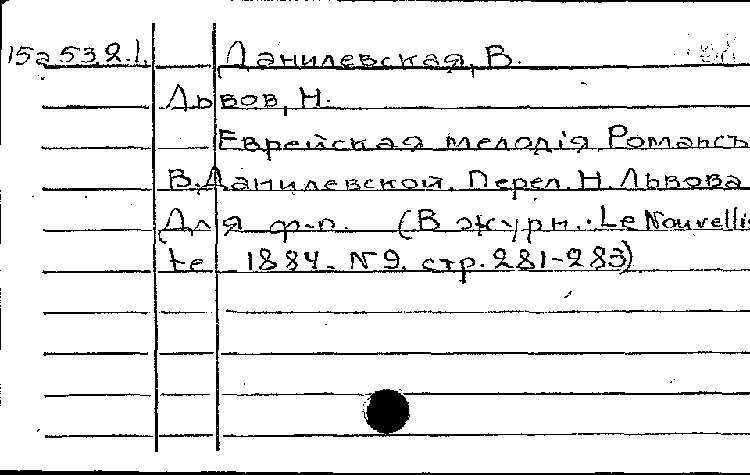 15а 532.1. Данилевская, В.
Львов, Н.
Еврейская мелодія Романсъ
В. Данилевской. Перел. Н. Львова
Для ф-п. (В журн.: Le Nouvellis
te 1884. N 9. стр. 281-283)